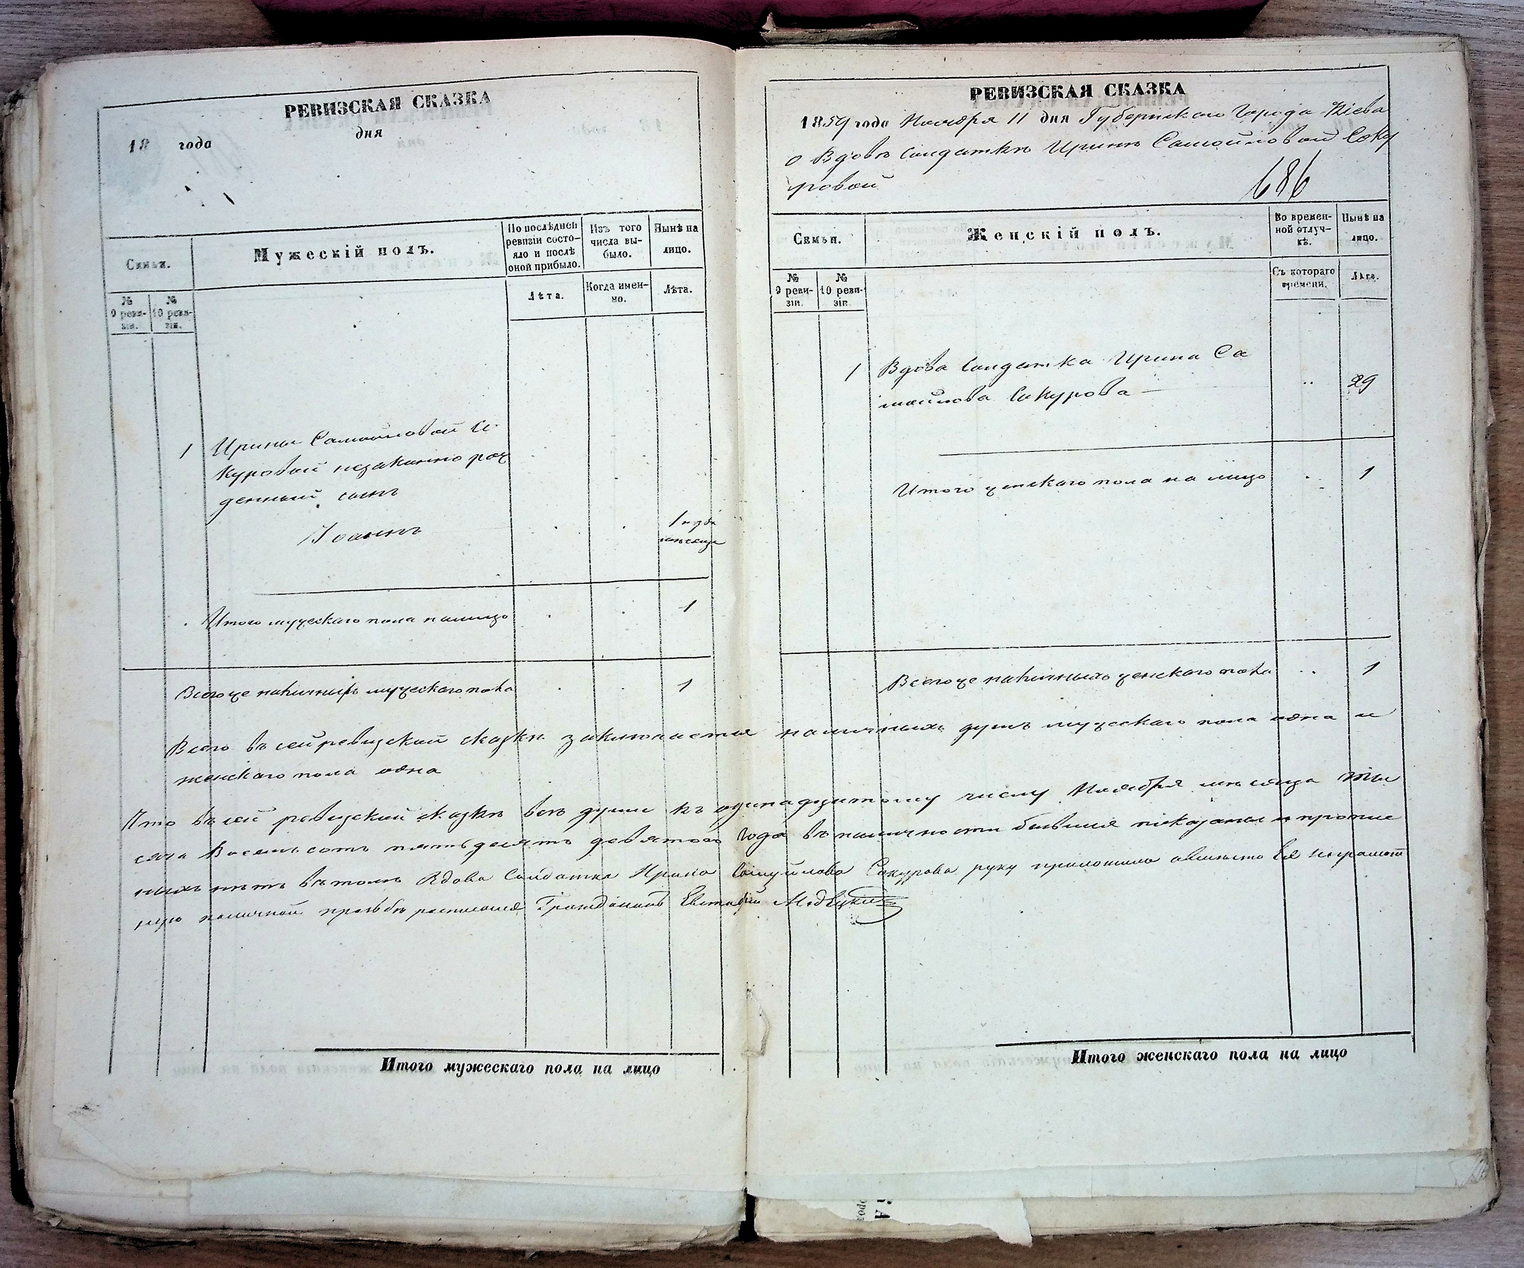 РЕВИЗСКАЯ СКАЗКА
дня
18 года
Семьи.
Мужескій полъ.
По послѣдней ревизіи состояло и послѣ оной прибыло.
Изъ того числа выбыло.
Нынѣ на лицо.
№ 9 ревизіи.
№ 10 ревизіи.
Лѣта.
Когда именно.
Лѣта.
1 Ирины Самойловой Со
куровой незаконно рож
денный сынъ
Іоаннъ
1
Итого мужескаго пола на лицо 1
Всего же наличныхъ мужескаго пола 1
РЕВИЗСКАЯ СКАЗКА
1859 года Ноября 11 дня Губернскаго Города Кіева
О Вдовѣ солдаткѣ Иринѣ Самойловой Соку
ровой
686
Семьи.
Женскій полъ.
Во временной отлучкѣ.
Нынѣ на лицо.
№ 9 ревизіи.
№ 10 ревизіи.
Съ котораго времени.
Лѣта.
1 Вдова Солдатка Ирина Са
мойлова Сокурова 29
Итого женскаго пола на лицо 1
Всего же наличныхъ женскаго пола 1
Всего въ сей ревизской сказкѣ заключается наличныхъ душъ мужескаго пола одна и
женскаго пола одна
Что въ сей ревизской сказкѣ всѣ души къ одинадцатому числу Ноября мѣсяца Ты
сяча Восемьсотъ пятьдесятъ девятого Года въ наличности бывшия показаны и пропис
ныхъ нѣтъ въ томъ Вдова Солдатка Ирина Самуйлова Сокурова руку приложила а вместо ея неграмот
ной по личной прозьбѣ росписался Гражданинъ
Итого мужескаго пола на лицо
Итого женскаго пола на лицо